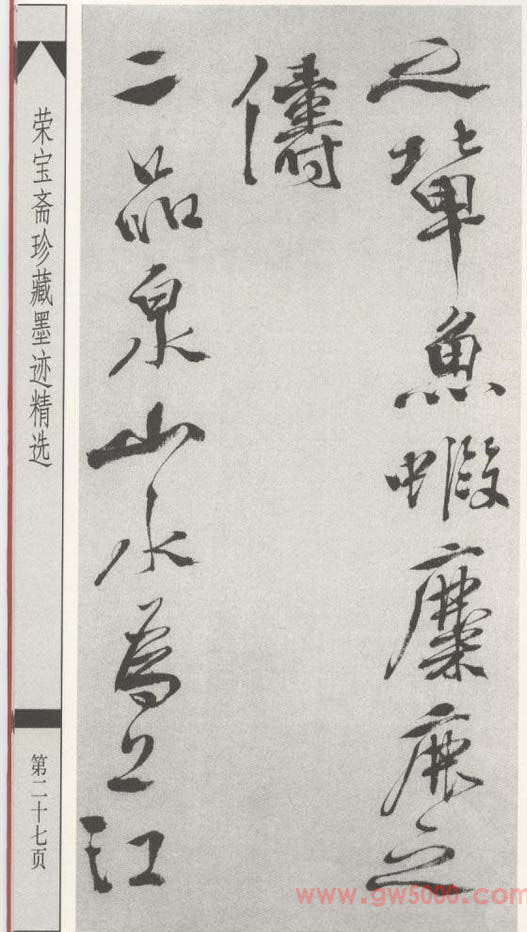 之輩魚蝦麋鹿之
儔
二品泉山水為上江
荣宝斋珍藏墨迹精选
第二十七页
www.gw5000.com